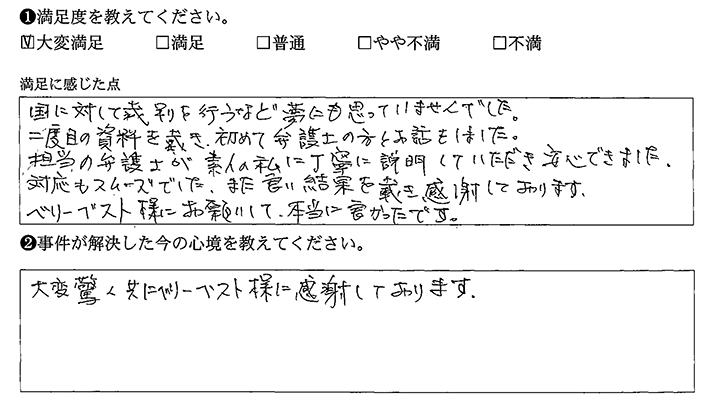 ❶満足度を教えてください。
☑大変満足 □満足 □普通 □やや不満 □不満
満足に感じた点
国に対して裁判を行うなど夢にも思っていませんでした。
二度目の資料を戴き、初めて弁護士の方とお話をしました。
担当の弁護士が素人の私に丁寧に説明していただき安心できました。
対応もスムーズでした、また良い結果を戴き感謝しております。
ベリーベスト様にお願いして、本当に良かったです。
❷事件が解決した今の心境を教えてください。
大変驚くと共にベリーベスト様に感謝しております。